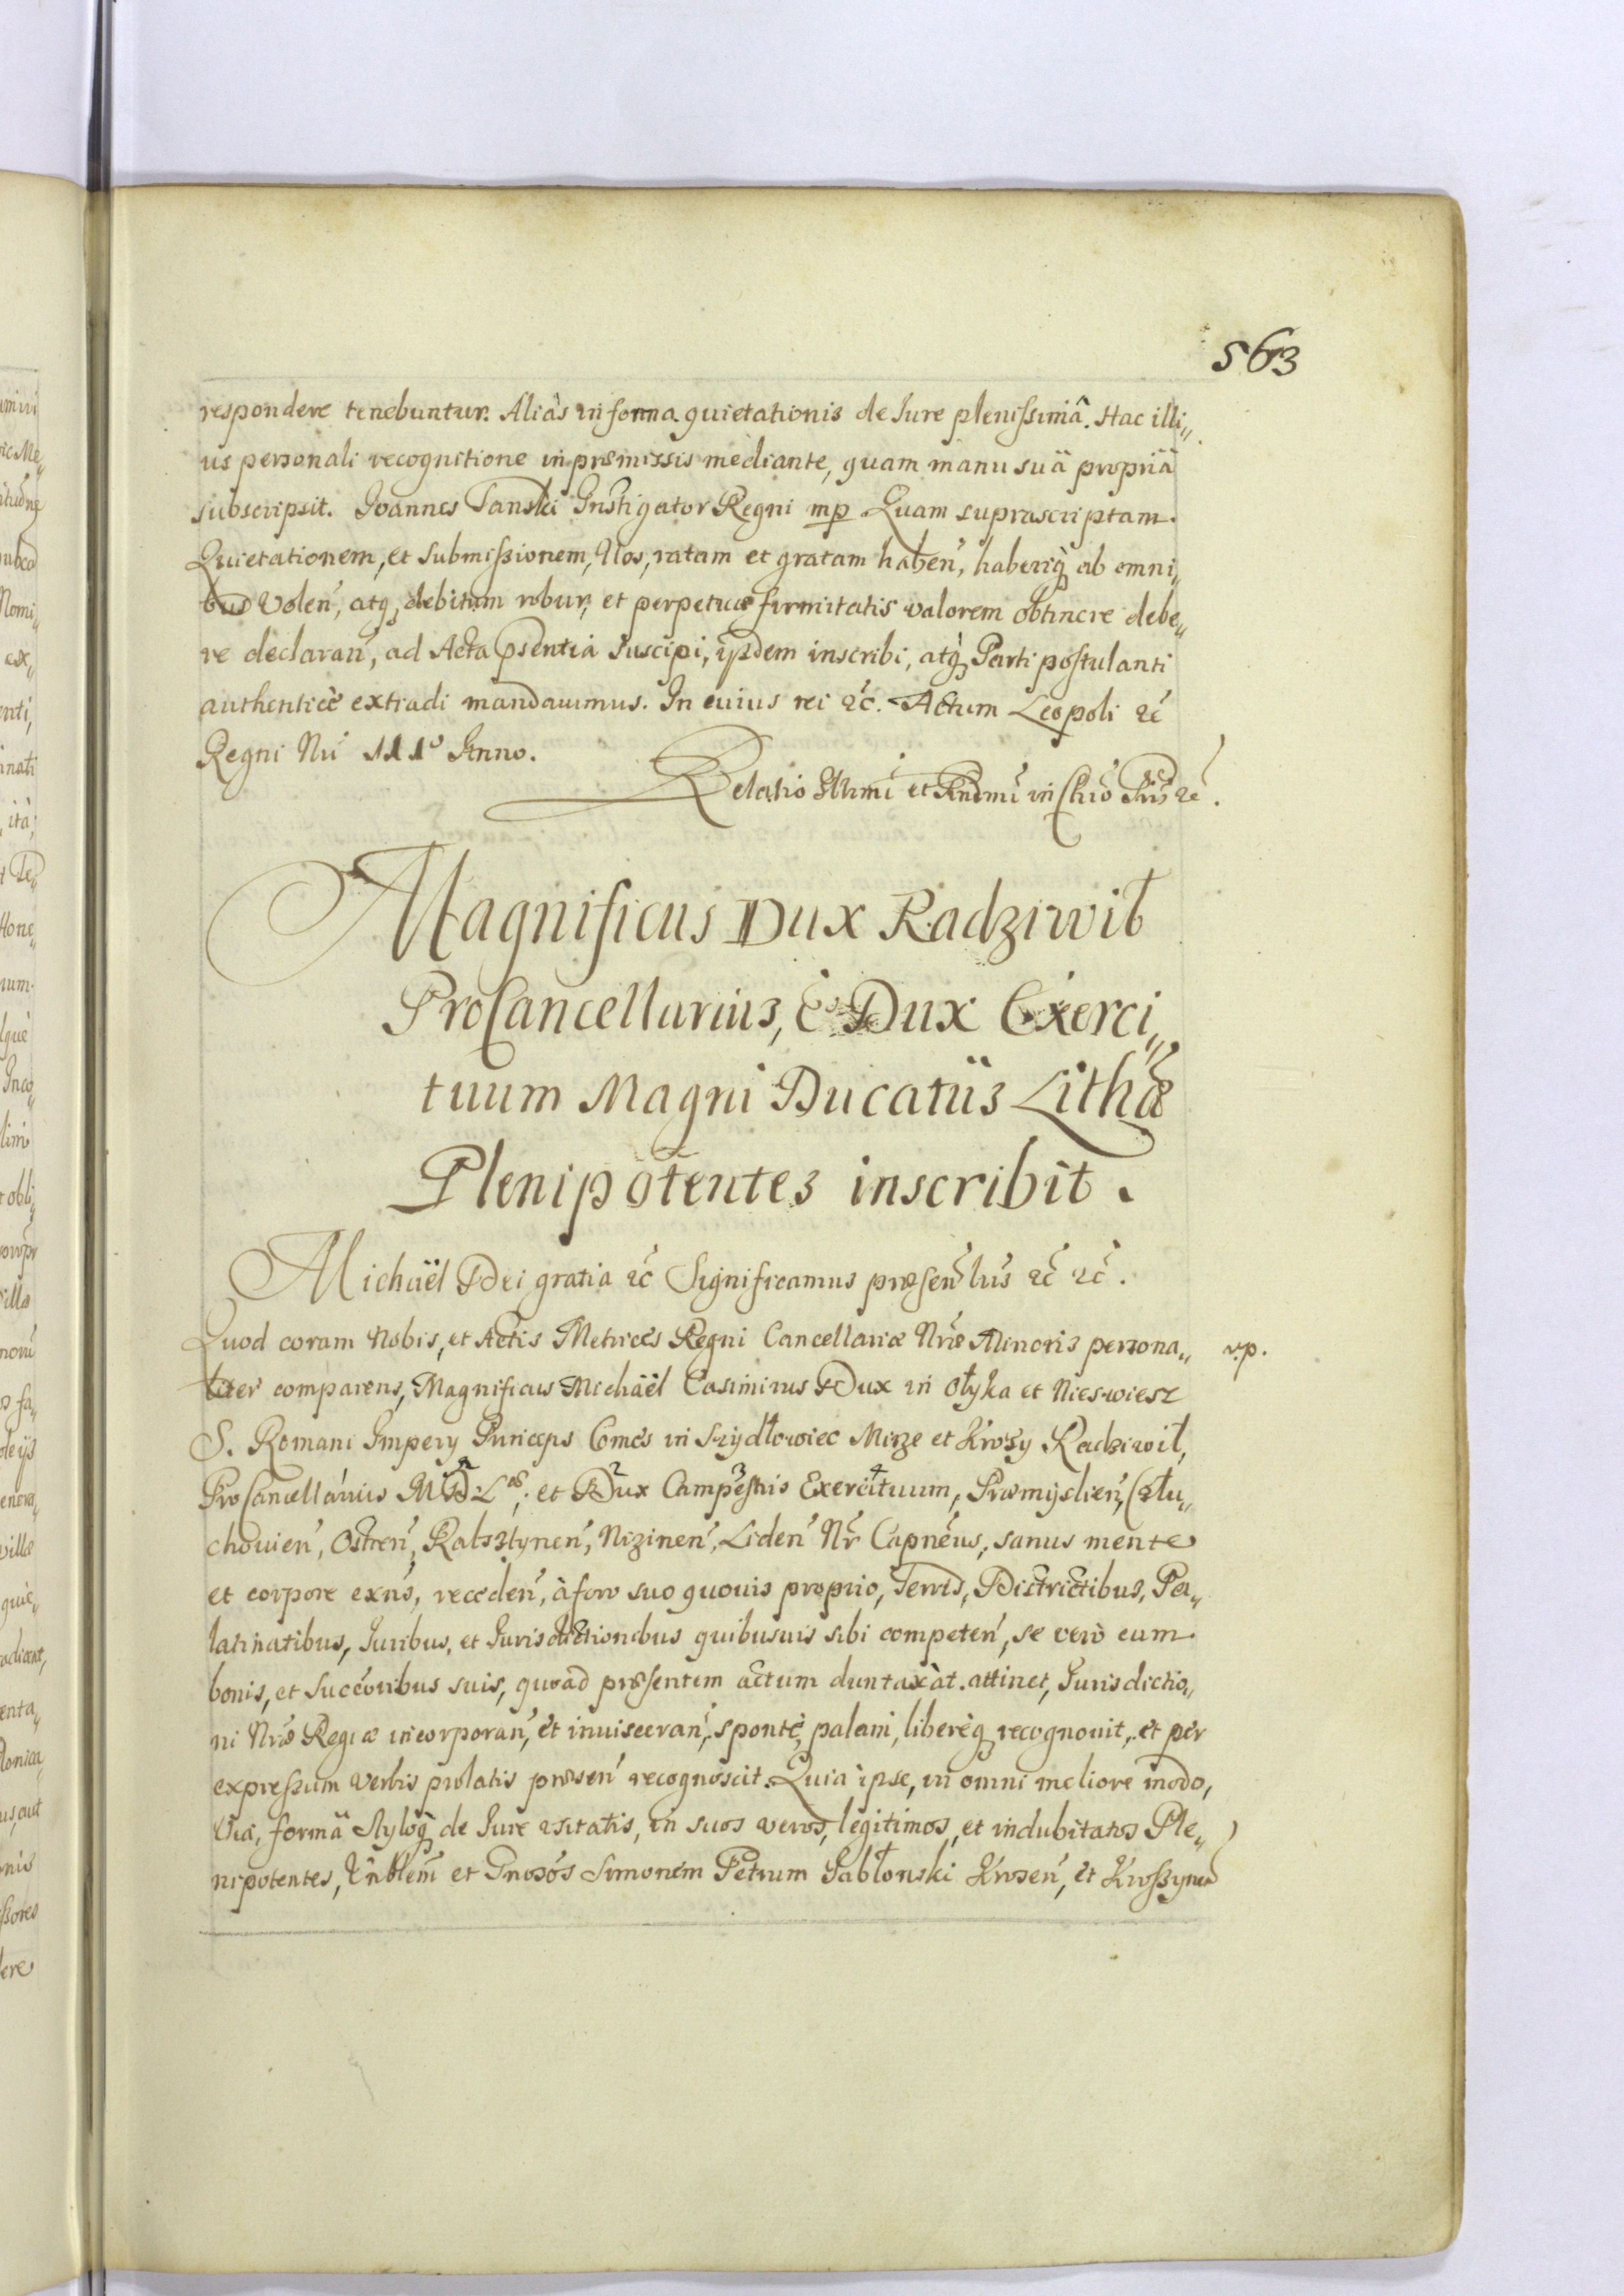 563
respondere tenebuntur. Aliàs in forma quietationis de Iure plenissimâ. Hac illi„
us personali recognitione in præmissis mediante, quam manu suâ propriâ
subscripsit. Ioannes Tanski Instigator Regni mp Quam suprascriptam
Quietationem, et submissionem, Nos, ratam et gratam haben, haberiq ab omni„
bus Volen, atq debitum robur, et perpetuæ firmitatis valorem obtinere debe„
re declaran, ad Acta psentia suscipi, ijsdem inscribi, atq Parti postulanti
authenticè extradi mandauimus. In cuius rei &c. Actum Leopoli &c
Regni Nri 111º Anno.
Relatio Illmi et Rndmi in Chro Pris &c.
Magnificus Dux Radziwił
ProCancellarius, & Dux Exerci„
tuum Magni Ducatûs Lithæ
Plenipotentes inscribit.
Michäel Dei gratia &c Significamus præsentibus &c &c.
Quod coram Nobis, et Actis Metrices Regni Cancellariæ Nræ Minoris persona„ v.p.
liter comparens, Magnificus Michäel Casimirus Dux in Ołyka et Nieswiesz
S. Romani Impery Princeps Comes in Szydłowiec Mirze et Krozy Radziwił,
ProCancellarius M D L; et Dux Campestris Exercituum, Præmyslien, Człu„
chouien, Ostren, Rabsztynen, Nizinen, Liden Nr Capneus, sanus mente
et corpore exns, receden, à foro suo quouis proprio, Terris, Districtibus, Pa„
latinatibus, Iuribus, et Iurisdictionibus quibusuis sibi competen, se verò cum
bonis, et Succoribus suis, quoad præsentem actum duntaxàt attinet, Iurisdictio„
ni Nræ Regiæ incorporan, et inuisceran, spontè, palam, liberèq recognouit, et per
expressum verbis prolatis præsen recognoscit. Quia ipse, in omni meliore modo,
Via, formâ styloq de Iure usitatis, in suos veros, legitimos, et indubitatos Ple„
nipotentes, et Gnosos Simonem Petrum Iabłonski Krosen, et